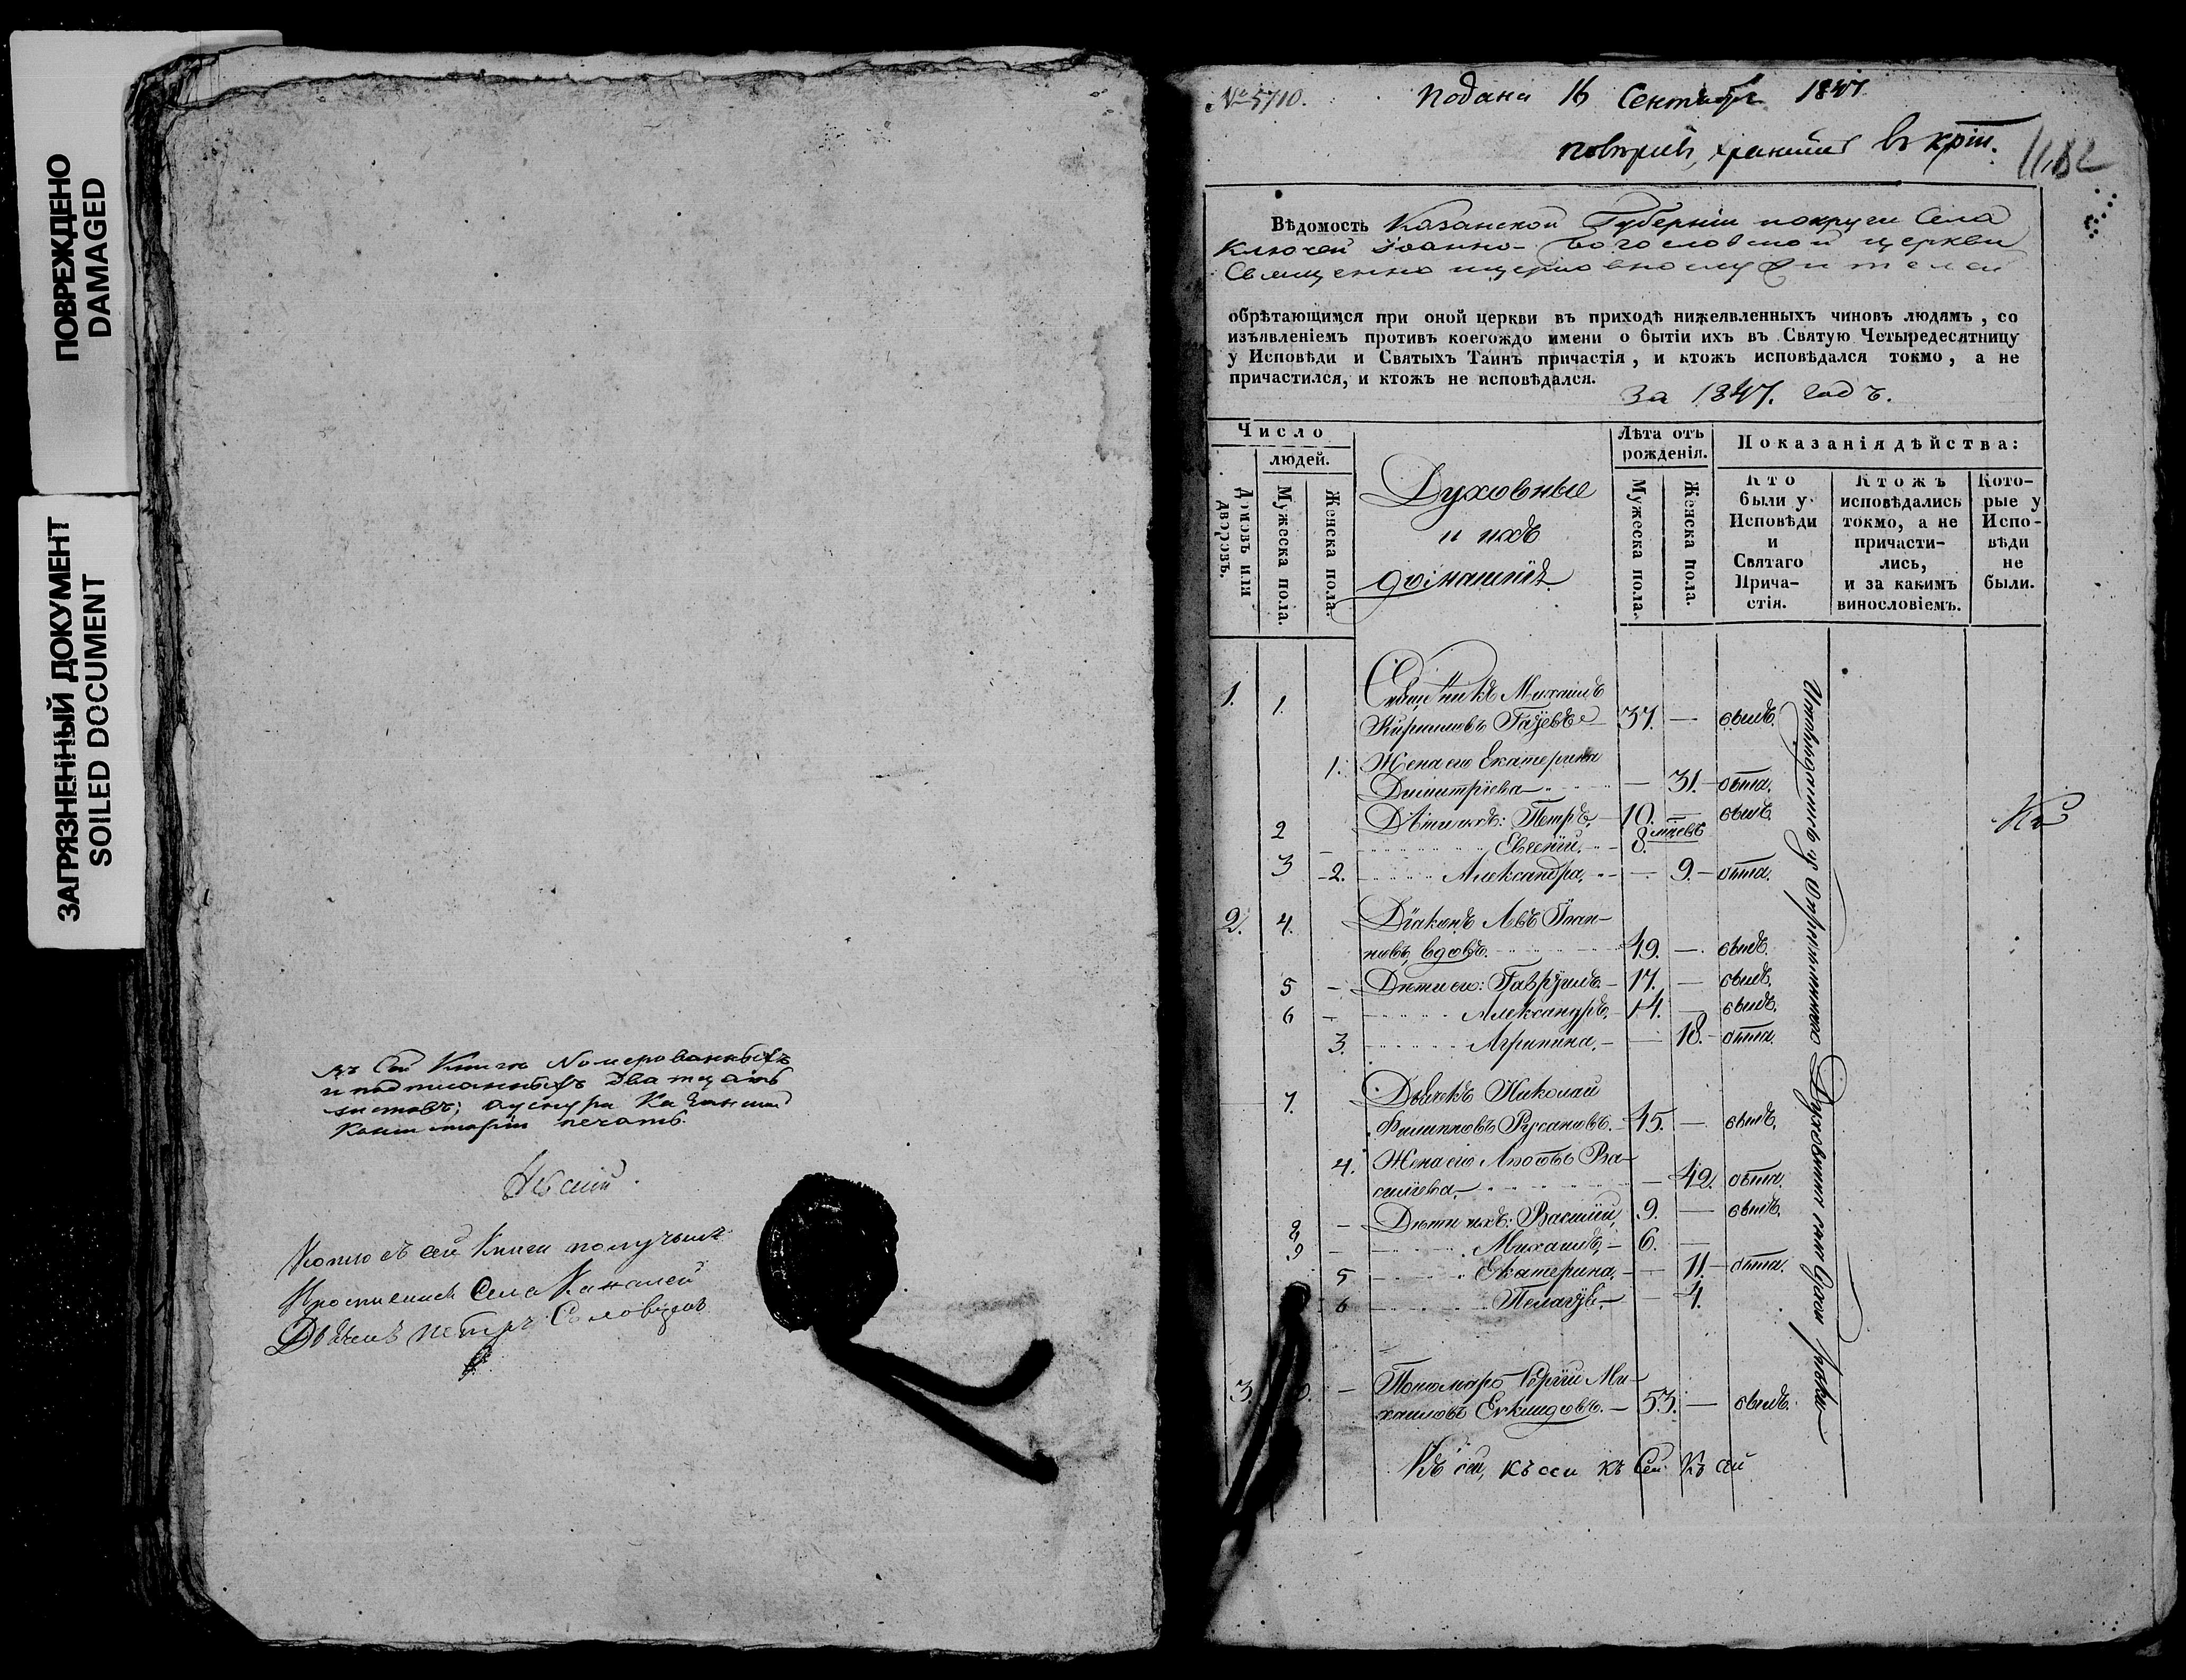 ПОВРЕЖДЕНО
DAMAGED
ЗАГРЯЗНЕННЫЙ ДОКУМЕНТ
SOILED DOCUMENT
въ сей Книгѣ Номерованныхъ
и подписанныхъ двадцать
листовъ;
Консисторіи печать.
Копію съ сей Книги получилъ
Села
Дьячекъ Петръ Соловьевъ
№ 5710.
Подана 16 Сентября 1847
1182
Вѣдомость Казанской Губерніи округи Села
Ключей Іоанно-Богословской церкви
Священно церковнослужителей
обрѣтающимся при оной церкви въ приходѣ нижеявленныхъ чиновъ людямъ, со
изъявленіемъ противъ коегождо имени о бытіи ихъ въ Святую Четыредесятницу
у Исповѣди и Святыхъ Таинъ причастія, и ктожъ исповѣдался токмо, а не
причастился, и ктожъ не исповѣдался.
За 1847. годъ.
Число
людей.
Домовъ или дворовъ.
Мужеска пола.
Женска пола.
Духовные
и ихъ
домашніе
Лѣта отъ
рожденія.
Мужеска пола.
Женска пола.
Показанія дѣйства:
Кто
были у
Исповѣди
и
Святаго
Прича-
стія.
Ктожъ
исповѣдались
токмо, а не
причасти-
лись,
и за какимъ
винословіемъ.
Кото-
рые у
Испо-
вѣди
не
были.
1. 1. Священникъ Михаилъ
Кириловъ 37. — былъ.
1. Жена его Екатерина
Димитріева — 31. — была.
2 Дѣти ихъ: Петръ, 10. — былъ.
3 Евгеній. 8 мцовъ
2. Александра, — 9. — была.
2. 4. Діаконъ Левъ Іоан-
новъ, вдовъ. 49. — былъ.
5 — Дѣти его: Гавріилъ — 17. — былъ.
6 — Александръ, 14. — былъ.
3. Агрипина. — 18. — была.
7. Дьячекъ Николай
Филипповъ Русановъ. 45. — былъ.
4. Жена его Любовь Ва-
сильева. — 42. была.
8 — Дѣти ихъ: Василій, 9. — былъ.
9 — Михаилъ, — 6. —
5 Екатерина. — 11. — была.
6 Пелагія. — 4.
3. — Пономарь Сергій Ми-
хаиловъ — 53. — былъ.
Къ сей, къ сей къ сей къ сей